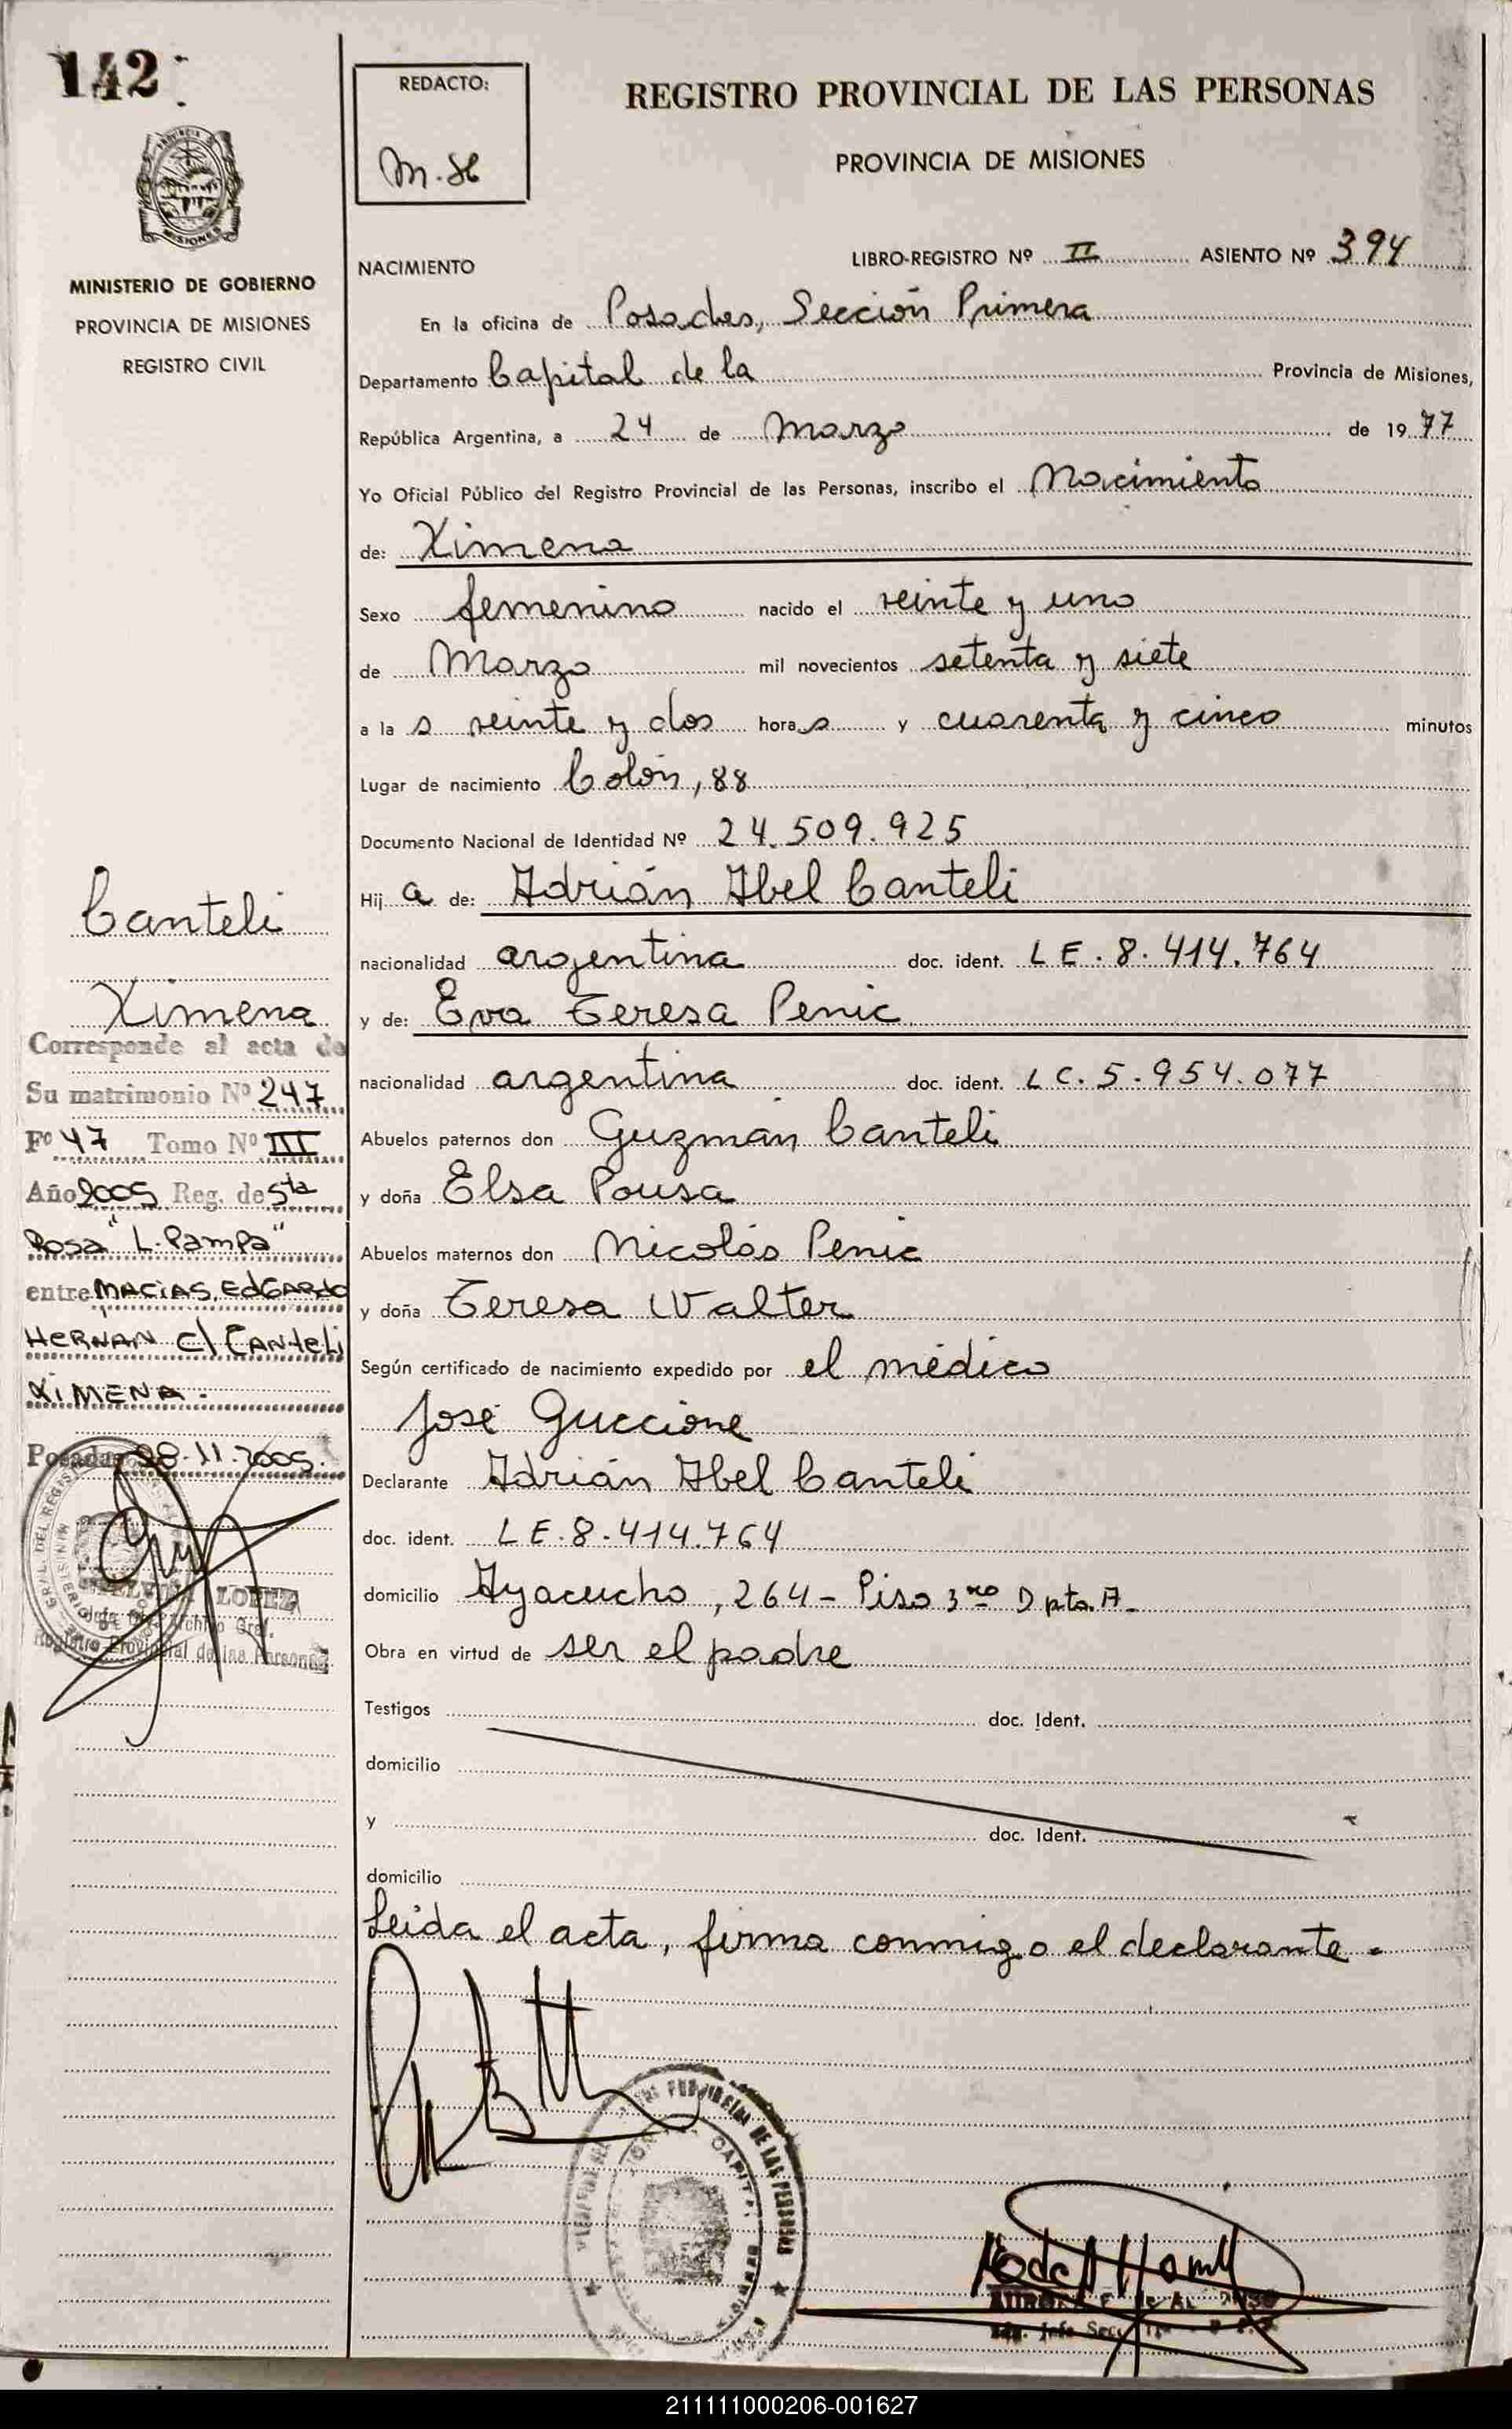 142
REDACTO:
M. H
REGISTRO PROVINCIAL DE LAS PERSONAS
PROVINCIA DE MISIONES
MISIONES
MINISTERIO DE GOBIERNO
PROVINCIA DE MISIONES
REGISTRO CIVIL
NACIMIENTO
LIBRO-REGISTRO Nº II ASIENTO Nº 394
En la oficina de Posadas, Sección Primera
Departamento Capital de la Provincia de Misiones,
República Argentina, a 24 de Marzo de 1977
Yo Oficial Público del Registro Provincial de las Personas, inscribo el Nacimiento
de: Ximena
Sexo femenino nacido el veinte y uno
de Marzo mil novecientos setenta y siete
a la s veinte y dos hora s y cuarenta y cinco minutos
Lugar de nacimiento Colón, 88
Documento Nacional de Identidad Nº 24.509.925
Hij a de: Adrián Abel Canteli
nacionalidad argentina doc. ident. LE. 8.414.764
y de: Eva Teresa Penic
nacionalidad argentina doc. ident. LC. 5.954.077
Abuelos paternos don Guzmán Canteli
y doña Elsa Pousa
Abuelos maternos don Nicolás Penic
y doña Teresa Walter
Según certificado de nacimiento expedido por el médico
José Guccione
Declarante Adrián Abel Canteli
doc. ident. LE. 8.414.764
domicilio Ayacucho, 264 - Piso 3ro Dpto. A.
Obra en virtud de ser el padre
Testigos doc. Ident.
domicilio
y doc. Ident.
domicilio
Leida el acta, firma conmigo el declarante.
Canteli
Ximena
Corresponde al acta de
Su matrimonio Nº 247
Fº 47 Tomo Nº III
Año 2005 Reg. de Sta
Rosa "L. Pampa"
entre MACIAS, EDGARDO
HERNAN c/ CANTELI
XIMENA.
Posadas 28-11-2005.
LOPEZ
Archivo Gral.
Registro Provincial de las Personas
211111000206-001627